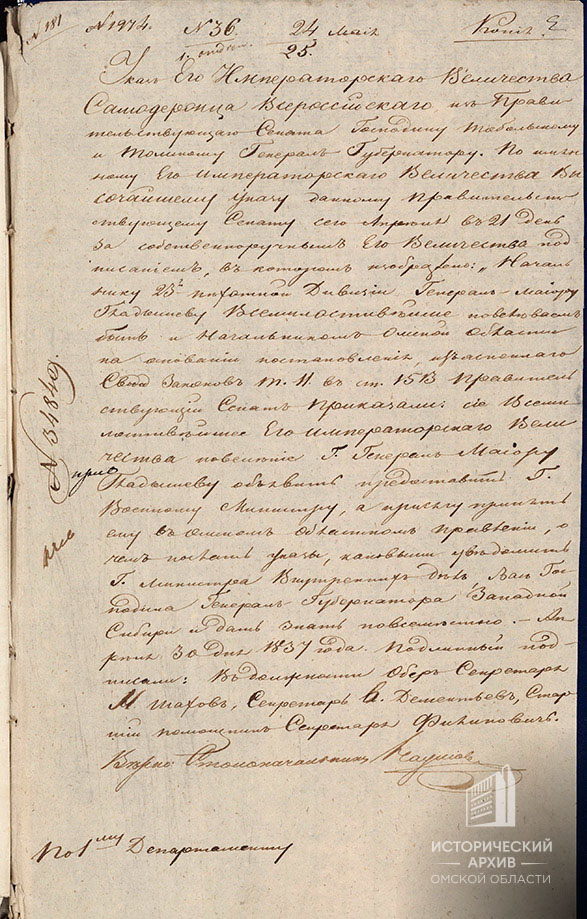 № 181
№ 1974.
№ 36.
24 маія
25.
Копія
Указъ Его Императорскаго Величества
Самодержца Всероссійскаго, изъ Прави
тельствующаго Сената Господину Тобольскому
и Томскому Генералъ Губернатору. По имян
ному Его Императорскаго Величества Вы
сочайшему указу данному Правительст
вующему Сенату сего Апреля въ 21 день
за собственноручнымъ Его Величества под
писаніемъ, въ которомъ изображено: „Началь
нику 23й пѣхотной Дивизіи Генералъ-Маіору
Гладышеву Всемилостивѣйше повелѣваемъ
быть и Начальникомъ Омской Области
на основаніи постановленія изъясненнаго
Свода Законовъ т. II. въ ст. 1513 Правитель
ствующій Сенатъ Приказали: сіе Всеми
лостивѣйшее Его Императорскаго Вели
чества повелѣніе Г. Генералъ Маіору
Гладышеву объявить предоставить Г.
Военному Министру, а присягу принять
ему въ Омскомъ областномъ правленіи, о
чемъ послать указы, каковыми увѣдомить
Г. Министра Внутреннихъ дѣлъ, Васъ Гос
подина Генералъ Губернатора Западной
Сибири и дать знать повсемѣстно. — Ап
рѣля 30 дня 1837 года. Подлинный под
писали: Въ должности Оберъ Секретаря
М. Шаховъ, Секретарь Дементьевъ, Стар
шій помощникъ Секретаря Филиповичь.
Вѣрно: Столоначальникъ Наумовъ
№ 34849.
По 1му Департаменту
ИСТОРИЧЕСКИЙ
АРХИВ
ОМСКОЙ ОБЛАСТИ